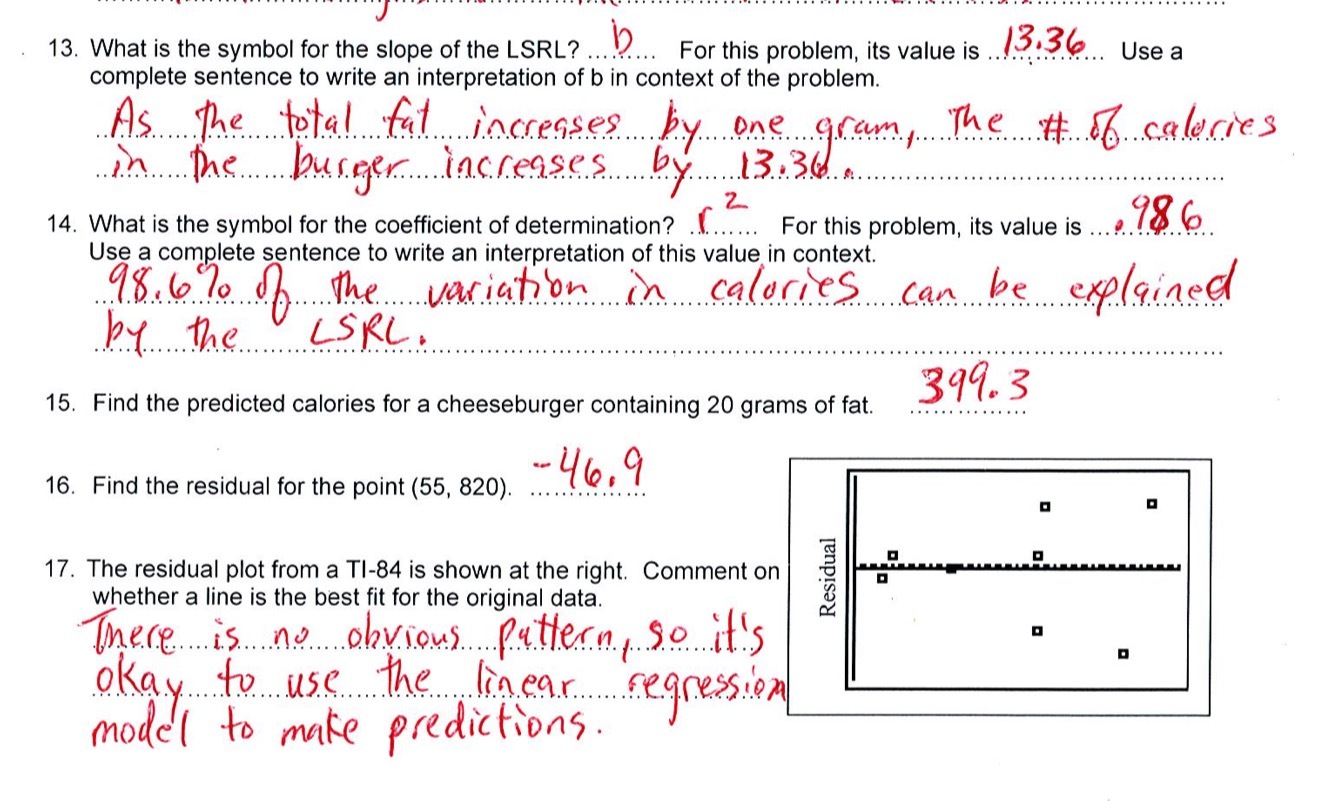 13. What is the symbol for the slope of the LSRL? ...b... For this problem, its value is ..13.36... Use a
complete sentence to write an interpretation of b in context of the problem.
As the total fat increases by one gram, the # of calories
in the burger increases by 13.36.
14. What is the symbol for the coefficient of determination? r² For this problem, its value is ....986..
Use a complete sentence to write an interpretation of this value in context.
98.6% of the variation in calories can be explained
by the LSRL.
15. Find the predicted calories for a cheeseburger containing 20 grams of fat. 399.3
16. Find the residual for the point (55, 820). -46.9
17. The residual plot from a TI-84 is shown at the right. Comment on
whether a line is the best fit for the original data.
There is no obvious pattern, so it's
okay to use the linear regression
model to make predictions.
Residual